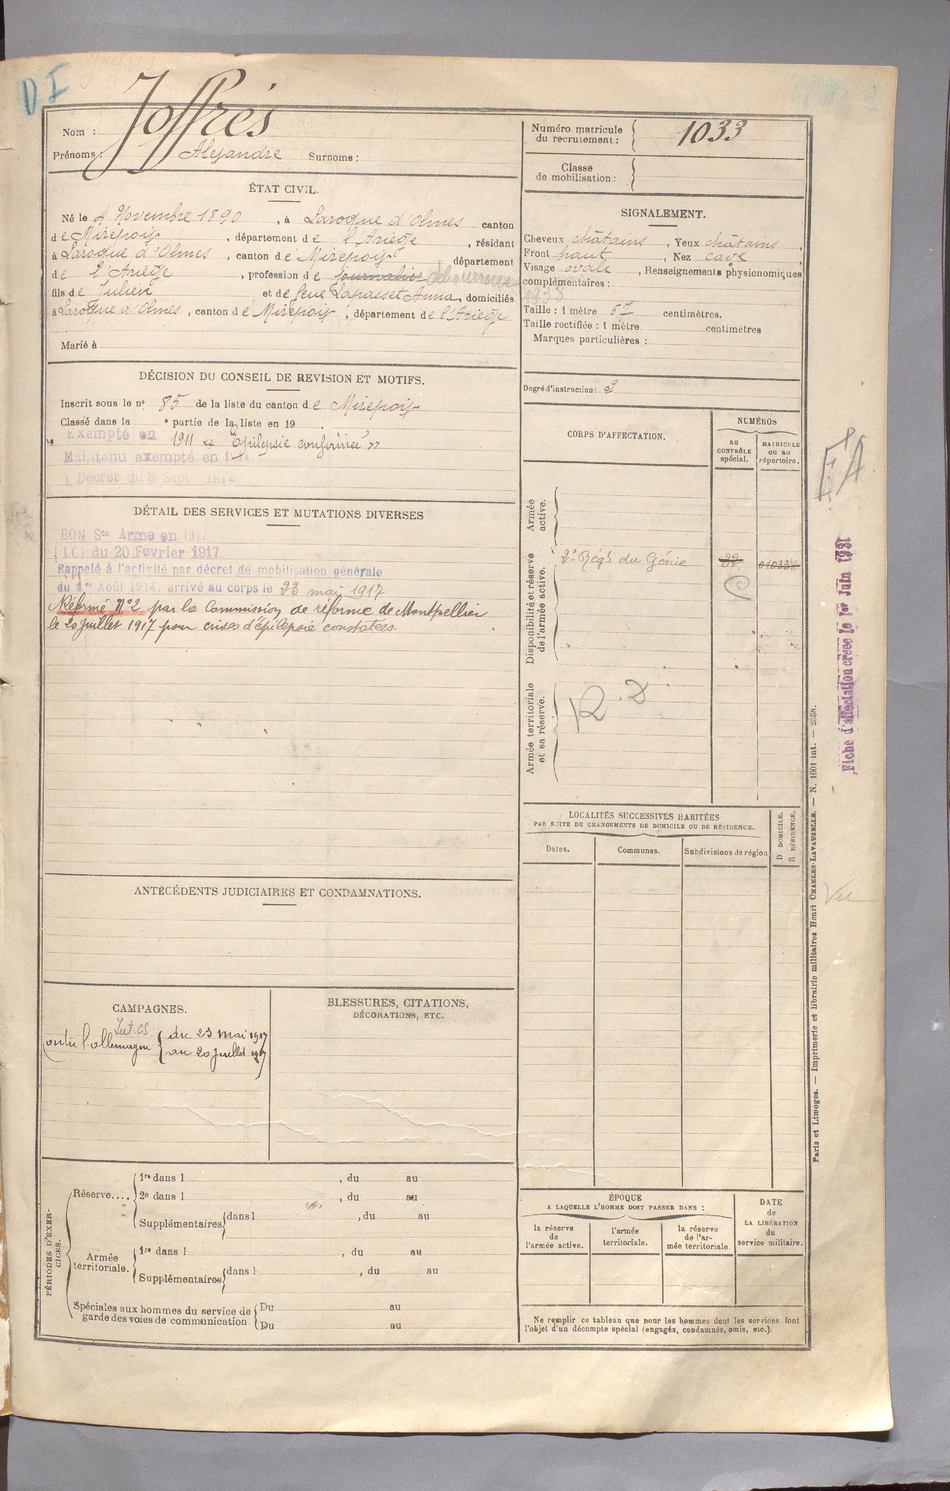 D I
Nom : Joffrés
Prénoms : Alexandre Surnoms :
ÉTAT CIVIL.
Né le 4 Novembre 1890, à Laroque d'Olmes canton
de Mirepoix, département de l'Ariège, résidant
à Laroque d'Olmes, canton de Mirepoix département
de l'Ariège, profession de journalier
fils de Julien et de feue Lapasset Anna, domiciliés
à Laroque d'Olmes, canton de Mirepoix, département de l'Ariège
Marié à
DÉCISION DU CONSEIL DE REVISION ET MOTIFS.
Inscrit sous le n° 85 de la liste du canton de Mirepoix
Classé dans la e partie de la liste en 19
Exempté en 1911 « Epilepsie confirmée »
Maintenu exempté en 1914
Décret du 9 Sept 1914
DÉTAIL DES SERVICES ET MUTATIONS DIVERSES
BON Sce Armé en 1917
Loi du 20 Février 1917
Rappelé à l'activité par décret de mobilisation générale
du 1er Août 1914. arrivé au corps le 23 mai 1917
Réformé N°2 par la Commission de réforme de Montpellier
le 20 juillet 1917 pour crises d'épilepsie constatées
ANTÉCÉDENTS JUDICIAIRES ET CONDAMNATIONS.
CAMPAGNES.
Contre l'allemagne { du 23 mai 1917
au 20 juillet 1917
BLESSURES, CITATIONS,
DÉCORATIONS, ETC.
PÉRIODES D'EXERCICES.
Réserve.... 1re dans l , du au
2e dans l , du au
Supplémentaires { dans l , du au
Armée territoriale. 1re dans l , du au
Supplémentaires { dans l , du au
Spéciales aux hommes du service de
garde des voies de communication { Du au
Du au
Numéro matricule
du recrutement : 1033
Classe
de mobilisation :
SIGNALEMENT.
Cheveux châtains, Yeux châtains,
Front haut, Nez cave
Visage ovale, Renseignements physionomiques
complémentaires :
1938
Taille : 1 mètre 67 centimètres.
Taille rectifiée : 1 mètre centimètres
Marques particulières :
Degré d'instruction : 2
CORPS D'AFFECTATION.
NUMÉROS
AU CONTRÔLE spécial.
MATRICULE OU AU répertoire.
Armée active.
Disponibilité et réserve de l'armée active.
2e Régt du Génie
Armée territoriale et sa réserve.
LOCALITÉS SUCCESSIVES HABITÉES
PAR SUITE DE CHANGEMENTS DE DOMICILE OU DE RÉSIDENCE.
Dates.
Communes.
Subdivisions de région
D. DOMICILE.
R. RÉSIDENCE.
ÉPOQUE
A LAQUELLE L'HOMME DOIT PASSER DANS :
la réserve de l'armée active.
l'armée territoriale.
la réserve de l'armée territoriale.
DATE
de
LA LIBÉRATION
du
service militaire.
Ne remplir ce tableau que pour les hommes dont les services font
l'objet d'un décompte spécial (engagés, condamnés, omis, etc.).
Fiche d'affectation créée le 1er Juin 1931
Paris et Limoges. — Imprimerie et librairie militaires Henri CHARLES-LAVAUZELLE. — N. 1001 int. —